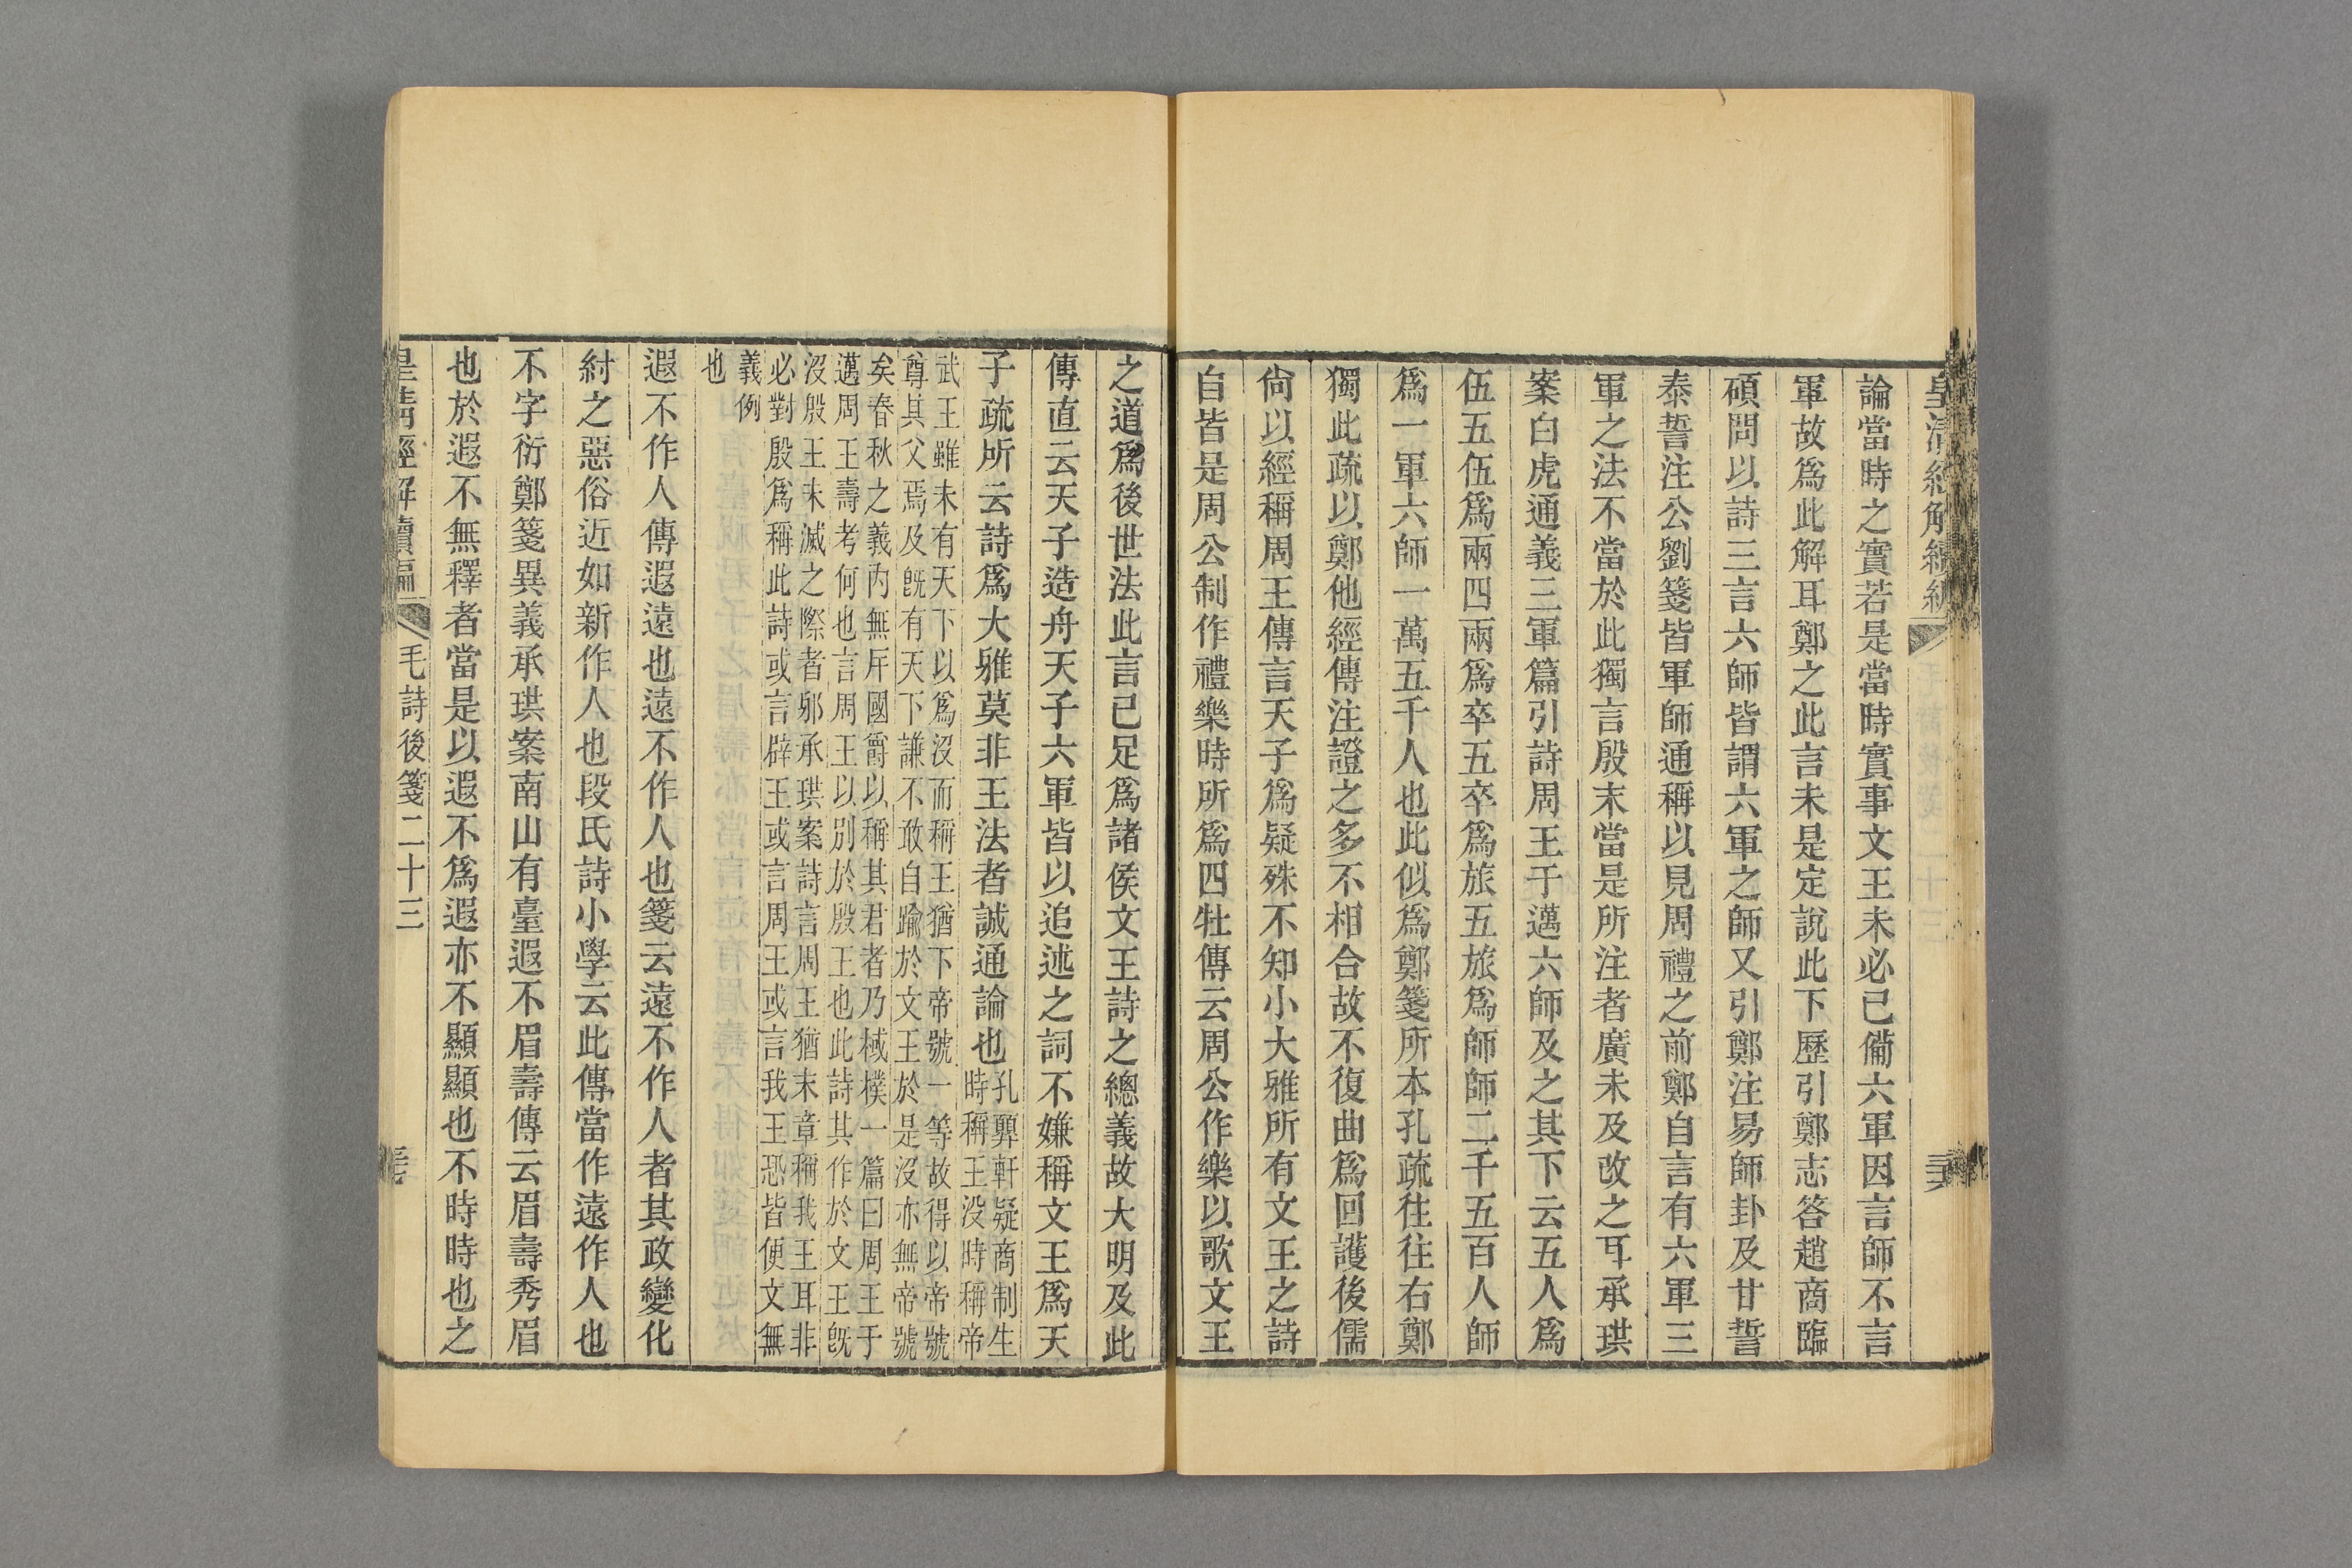 論當時之實若是當時實事文王未必已備六軍因言師不言
軍故爲此解耳鄭之此言未是定說此下歷引鄭志答趙商臨
碩問以詩三言六師皆謂六軍之師又引鄭注易師卦及甘誓
泰誓注公劉箋皆軍師通稱以見周禮之前鄭自言有六軍三
軍之法不當於此獨言殷末當是所注者廣未及改之耳承珙
案白虎通義三軍篇引詩周王于邁六師及之其下云五人爲
伍五伍爲兩四兩爲卒五卒爲旅五旅爲師師二千五百人師
爲一軍六師一萬五千人也此似爲鄭箋所本孔疏往往右鄭
獨此疏以鄭他經傳注證之多不相合故不復曲爲回護後儒
尙以經稱周王傳言天子爲疑殊不知小大雅所有文王之詩
自皆是周公制作禮樂時所爲四牡傳云周公作樂以歌文王
之道爲後世法此言已足爲諸侯文王詩之總義故大明及此
傳直云天子造舟天子六軍皆以追述之詞不嫌稱文王爲天
子疏所云詩爲大雅莫非王法者誠通論也孔㢲軒疑商制生
時稱王没時稱帝
武王雖未有天下以爲沒而稱王猶下帝號一等故得以帝號
尊其父焉及旣有天下謙不敢自踰於文王於是沒亦無帝號
矣春秋之義內無斥國爵以稱其君者乃棫樸一篇曰周王于
邁周王壽考何也言周王以別於殷王也此詩其作於文王旣
沒殷王未滅之際者邪承珙案詩言周王猶末章稱我王耳非
必對殷爲稱此詩或言辟王或言周王或言我王恐皆便文無
義例
也
遐不作人傳遐遠也遠不作人也箋云遠不作人者其政變化
紂之惡俗近如新作人也段氏詩小學云此傳當作遠作人也
不字衍鄭箋異義承珙案南山有臺遐不眉壽傳云眉壽秀眉
也於遐不無釋者當是以遐不爲遐亦不顯顯也不時時也之
皇清經解續編 毛詩後箋二十三